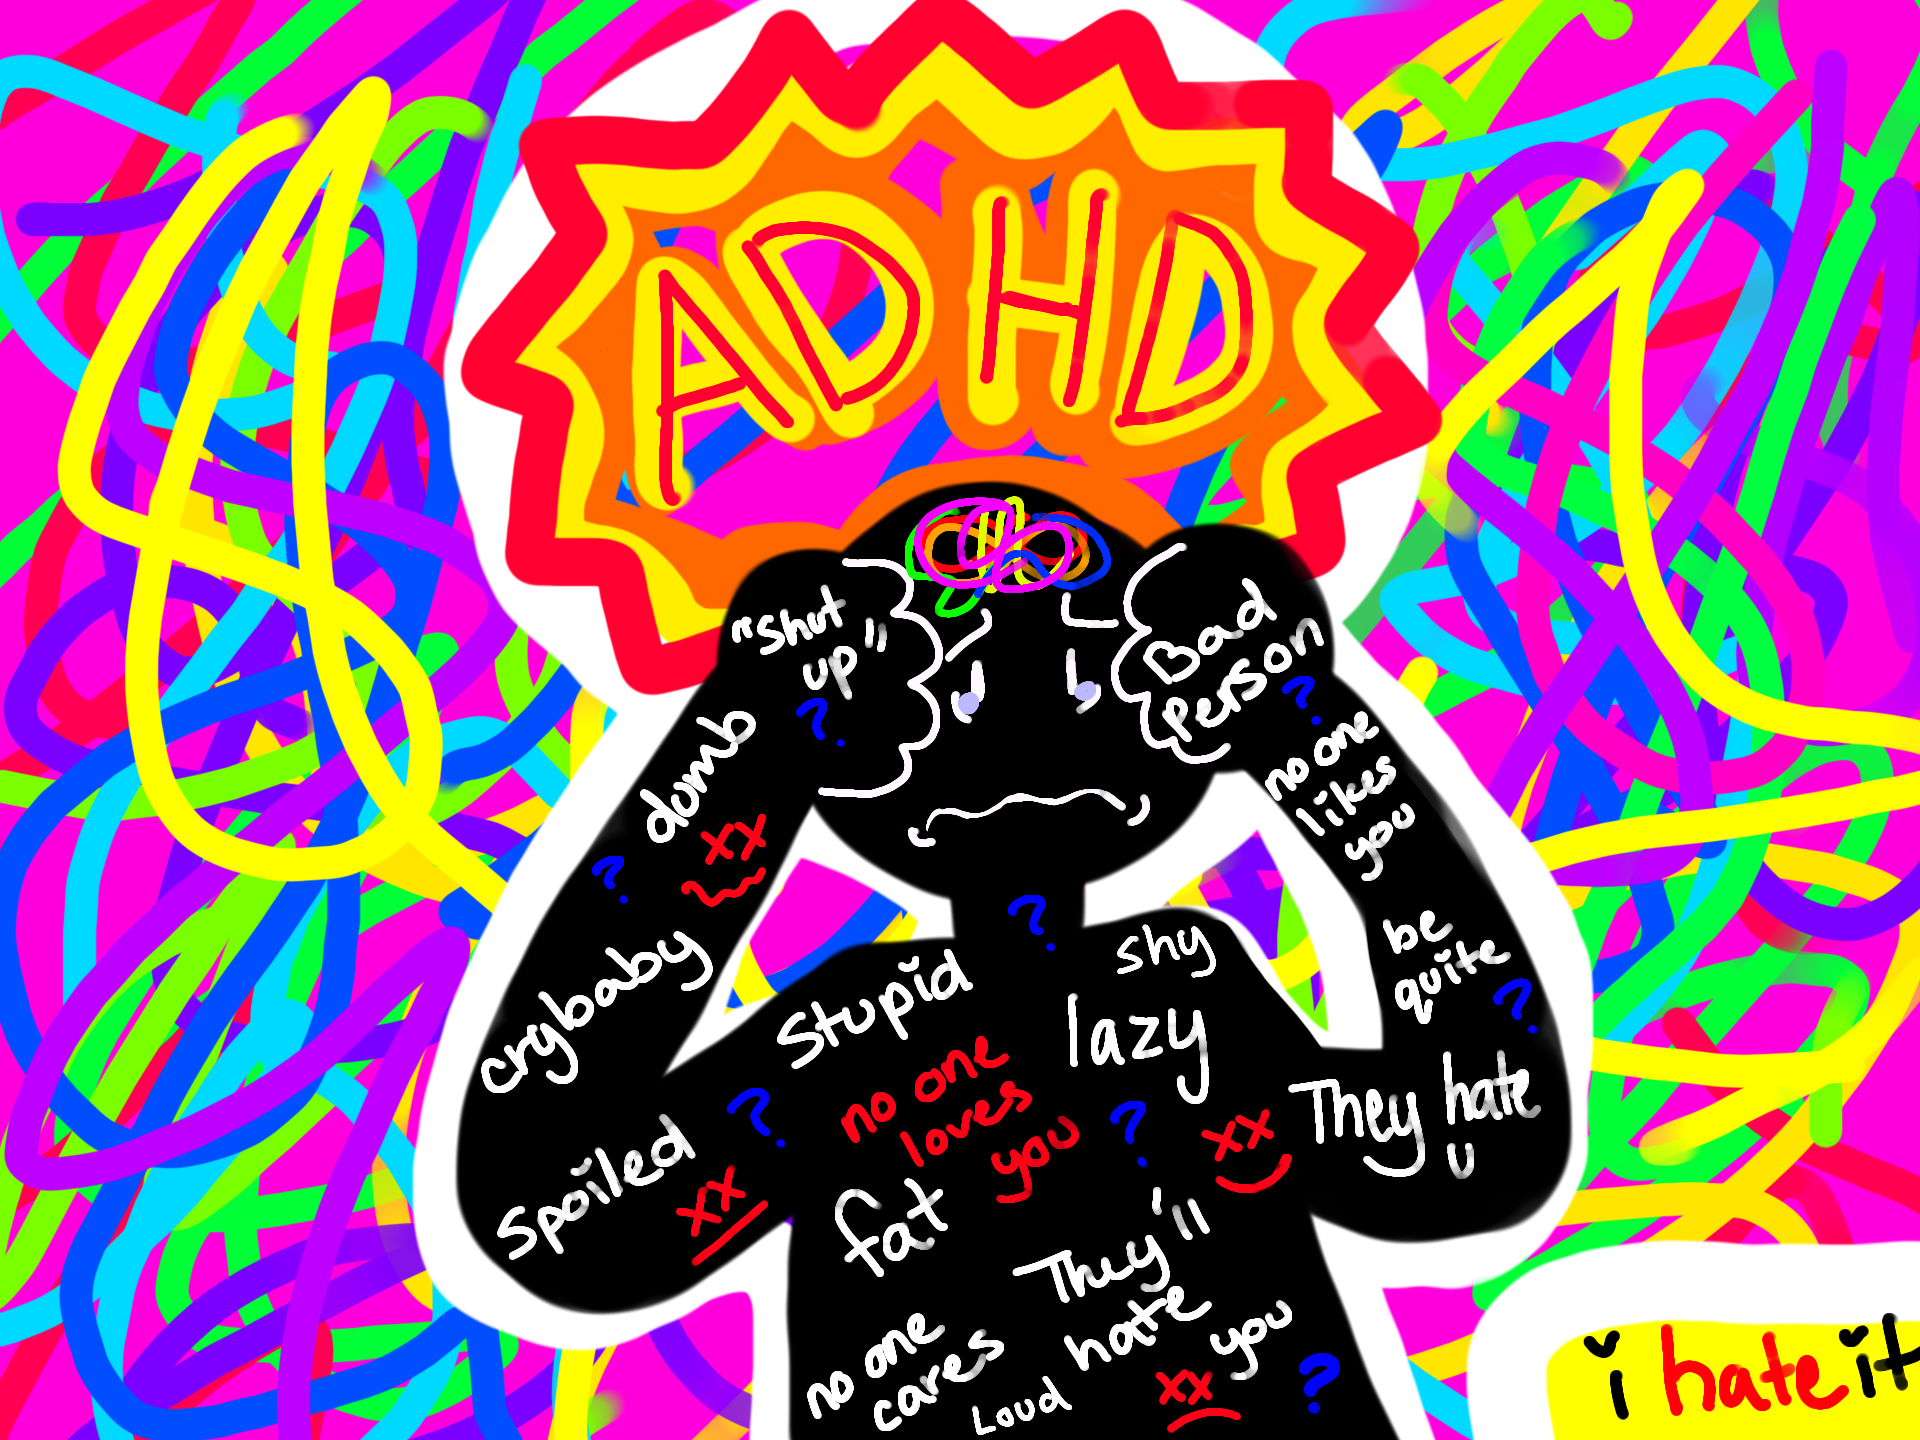 ADHD
"Shut
up"
?
Bad
Person
?
dumb
?
xx
no one
likes
you
crybaby
be
quite
?
?
Stupid
shy
lazy
no one
loves
you
?
?
They hate
u
Spoiled
xx
xx
fat
They'll
hate
you
no one
cares
Loud
xx
?
i hate it